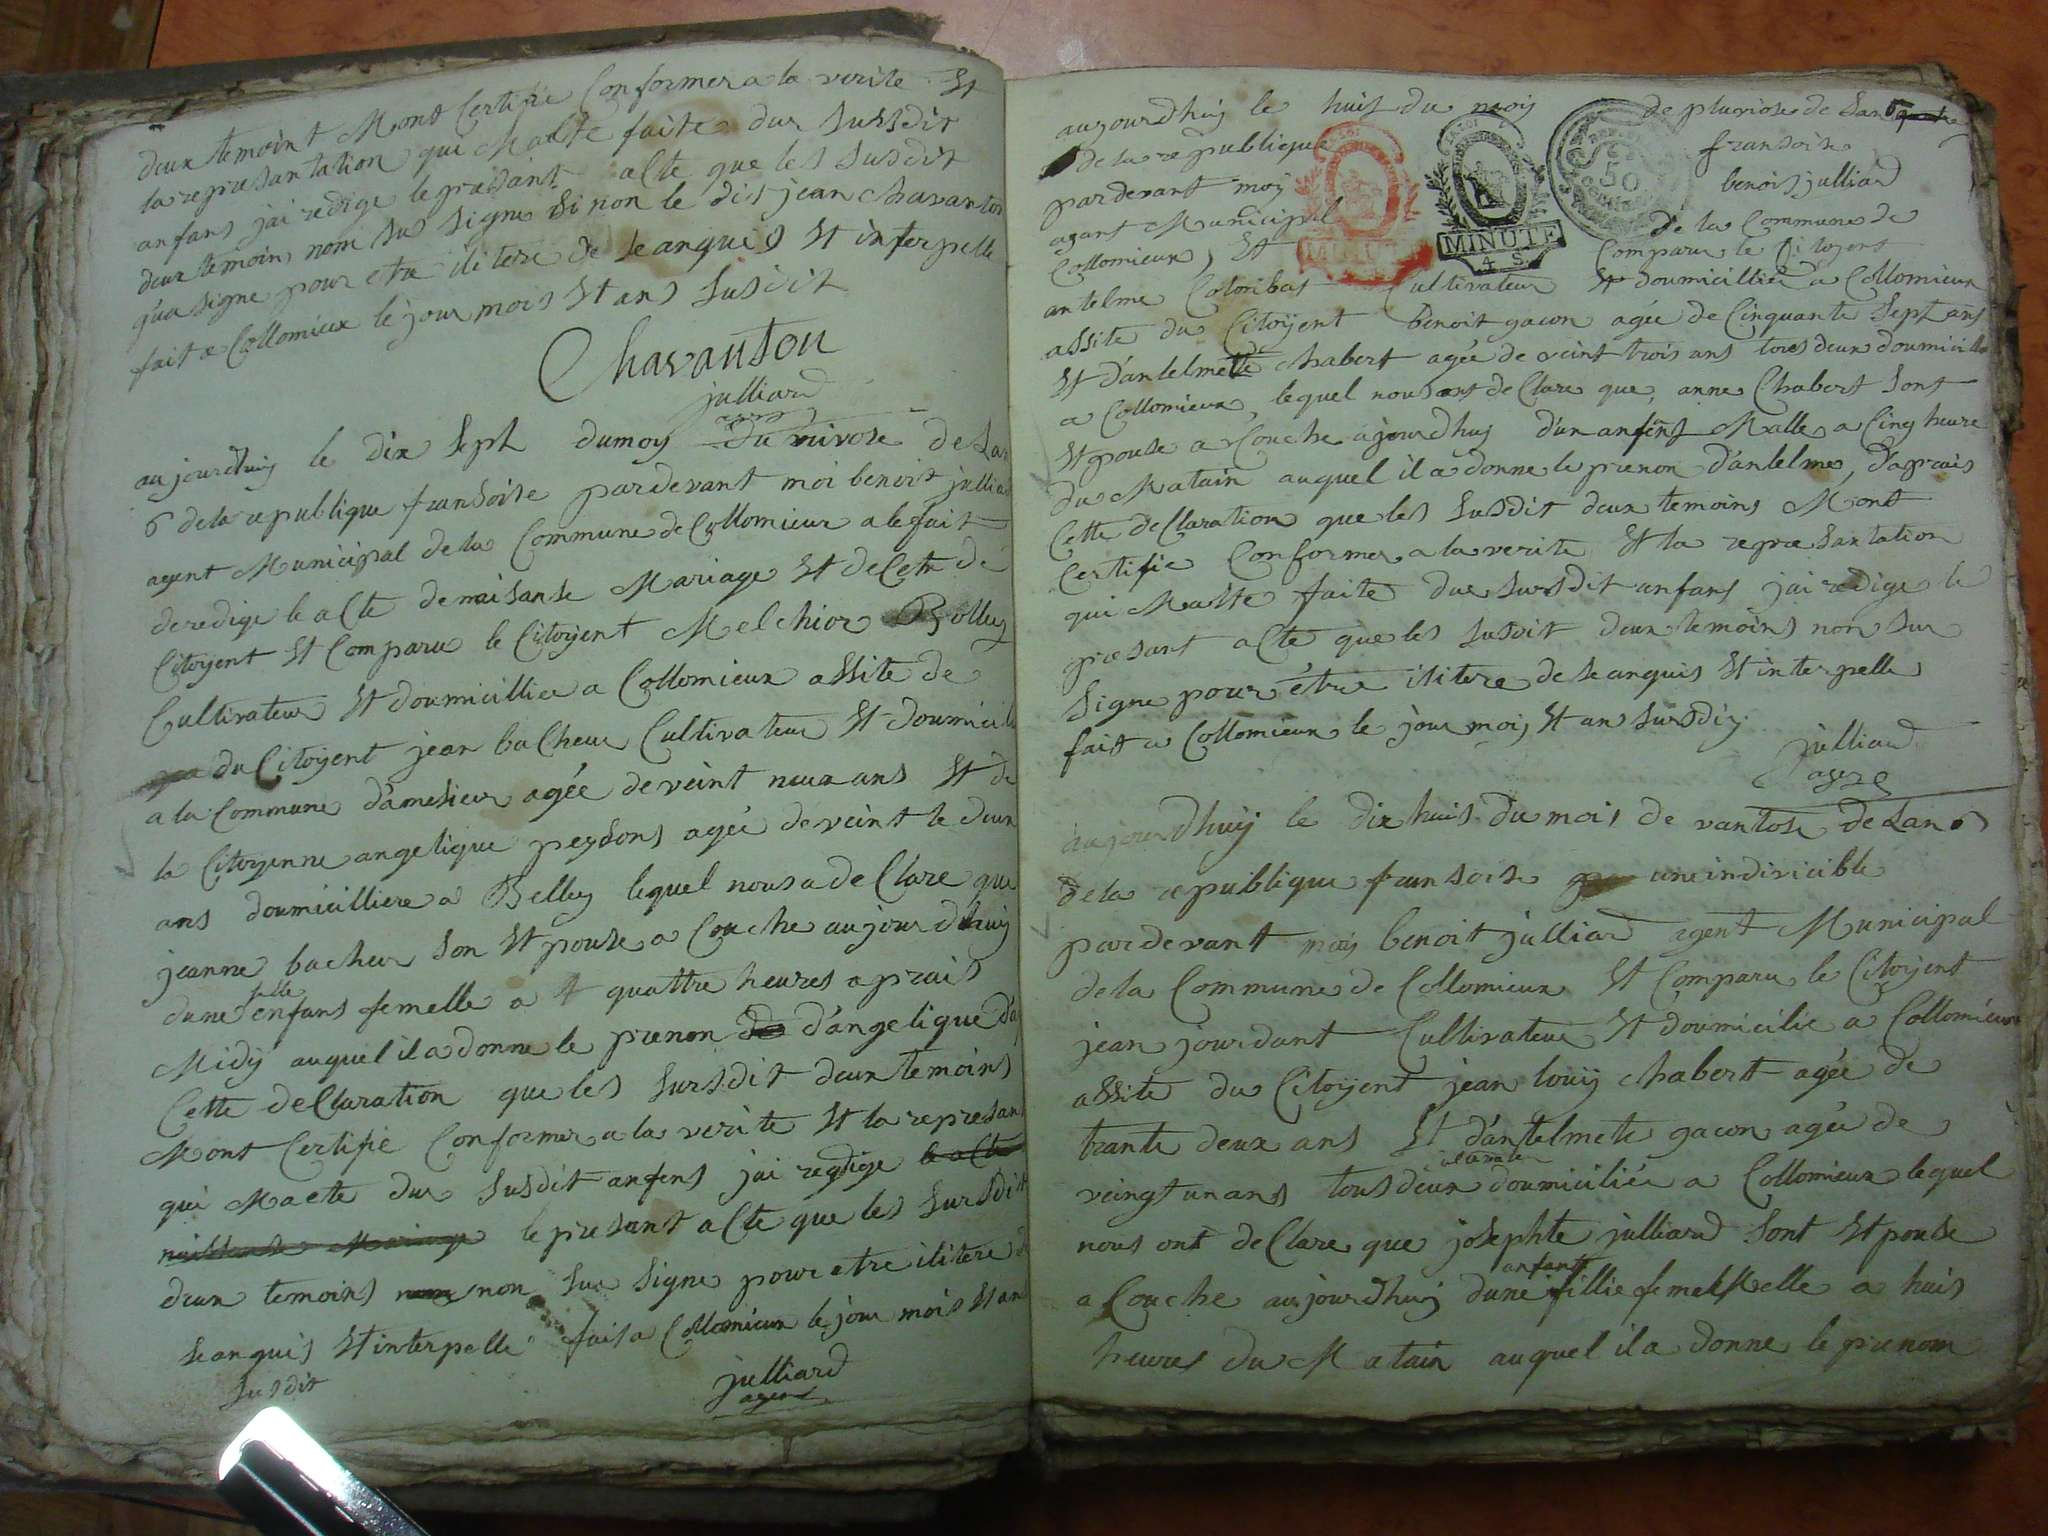 deux temoint Mont Certifie Conformer a la verite Et
la represantation qui Maette faite dur Sussdit
anfans jai redige le presant acte que les Susdit
deux temoins nom Su Signe Si non le dit jean Chavanton
qua signe pour etre ilitere de Se anquis Et interpelle
fait a Collomieux le jour mois Et ans Susdit
Chavanton
julliard
agent
aujourdhuy le dix Sept du moy du nivose de Lan
6 de la republique fransoise pardevant moi benoit julliard
agent Municipal de la Commune de Collomieux a lefait
deredige le acte de naisanse Mariage Et decete de
Citoyent Et Comparu le Citoyent Melchior Bolley
Cultivateur Et doumicillie a Collomieux assite de
du Citoyent jean bacheur Cultivateur Et doumicili
a la Commune d'amesieux agée de veint neux ans Et de
la Citoyenne angelique peysons agée deveint te deux
ans doumicilliere a Belley lequel nous a declare que
jeanne bacheur Son Et pouse a Couche aujourdhuy
dune fille enfans femelle a 4 quattre heures aprais
Midy auquel il a donne le prenon de d'angelique d'a
Cette declaration que les Sursdit deux temoins
Mont Certifie Conformer a la verite Et la represan
qui Maete dur Susdit anfens jai redige le acte
naissanse Mariage le presant acte que les Sursdit
deux temoins non non Sue Signe pour etre ilitere de
Se anquis Et interpelle fait a Collomieux le jour mois Et an
Susdit
julliard
agent
aujourdhuy le huit du mois de pluviose de Lan 6 quatre
de la republique fransoise
pardevant moy benoit julliard
agant Municipal de la Commune de
Collomieux, Et Comparu le Citoyent
MINUTE
4 S.
50
antelme Colonbat Cultivateur Et doumicillié a Collomieux
assite du Citoyent Benoit gacon agée de Cinquante Sept ans
Et d'antelmette Chabert agée de veint trois ans tous deux doumicillie
a Collomieux, lequel nous ont declare que, anne Chabert Sont
Et pouse a Couche ajourdhuy d'un anfens Malle a Cinq heure
du Matain auquel il a donne le prenon d'antelme, d'aprais
Cette declaration que les Susdit deux temoins Mont
Certifie Conformer a la verite Et la represantation
qui Maette faite dur Sursdit anfans jai redige le
presant acte que les Susdit deux temoins non Sur
Signe pour être ilitere de Se anquis Et interpelle
fait a Collomieux le jour mois Et an Sursdit
julliard
agent
aujourdhuy le dix huit du mois de vantose de Lan 6
de la republique fransoise une indivicible
pardevant moy benoit julliard agent Municipal
de la Commune de Collomieux Et Comparu le Citoyent
jean jourdant Cultivateur Et doumicilie a Collomieux
assite du Citoyent jean louiy Chabert agée de
trante deux ans Et d'antelmete gacon agée de
veingt un ans tous deux doumiciliée a Collomieux lequel
nous ont declare que josephte julliard Sont Et pouse
anfant
a Couche aujourdhuy dune fillie femelle a huit
heures du Matain auquel il a donne le prenom